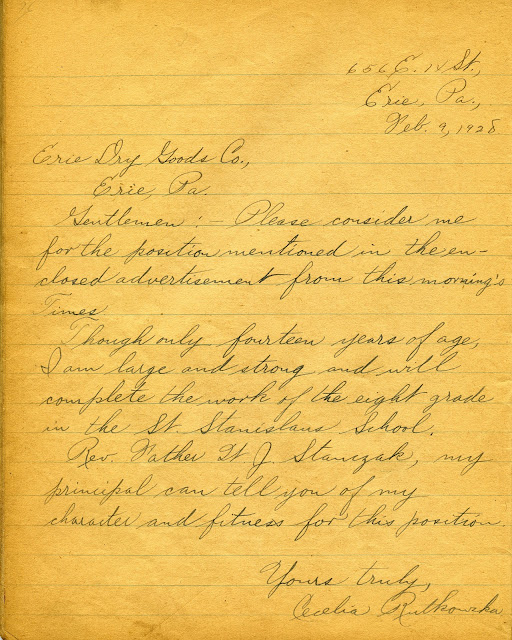 656 E. 14 St.,
Erie, Pa.,
Feb. 9, 1928
Erie Dry Goods Co.,
Erie, Pa.
Gentlemen: - Please consider me
for the position mentioned in the en-
closed advertisement from this morning's
Times.
Though only fourteen years of age,
I am large and strong and will
complete the work of the eight grade
in the St. Stanislaus School.
Rev. Father W J. Stanczak, my
principal can tell you of my
character and fitness for this position.
Yours truly,
Cecelia Rutkowska